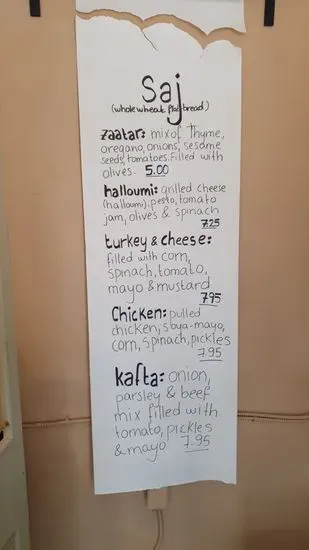 Saj
(whole wheat flat bread)
zaatar: mix of Thyme,
oregano, onions, sesame
seeds, tomatoes. Filled with
olives. 5.00
halloumi: grilled cheese
(halloumi), pesto, tomato
jam, olives & spinach
7.25
turkey & cheese:
filled with corn,
spinach, tomato,
mayo & mustard
7.95
Chicken: pulled
chicken, soya-mayo,
corn, spinach, pickles
7.95
kafta: onion,
parsley & beef
mix filled with
tomato, pickles
& mayo 7.95